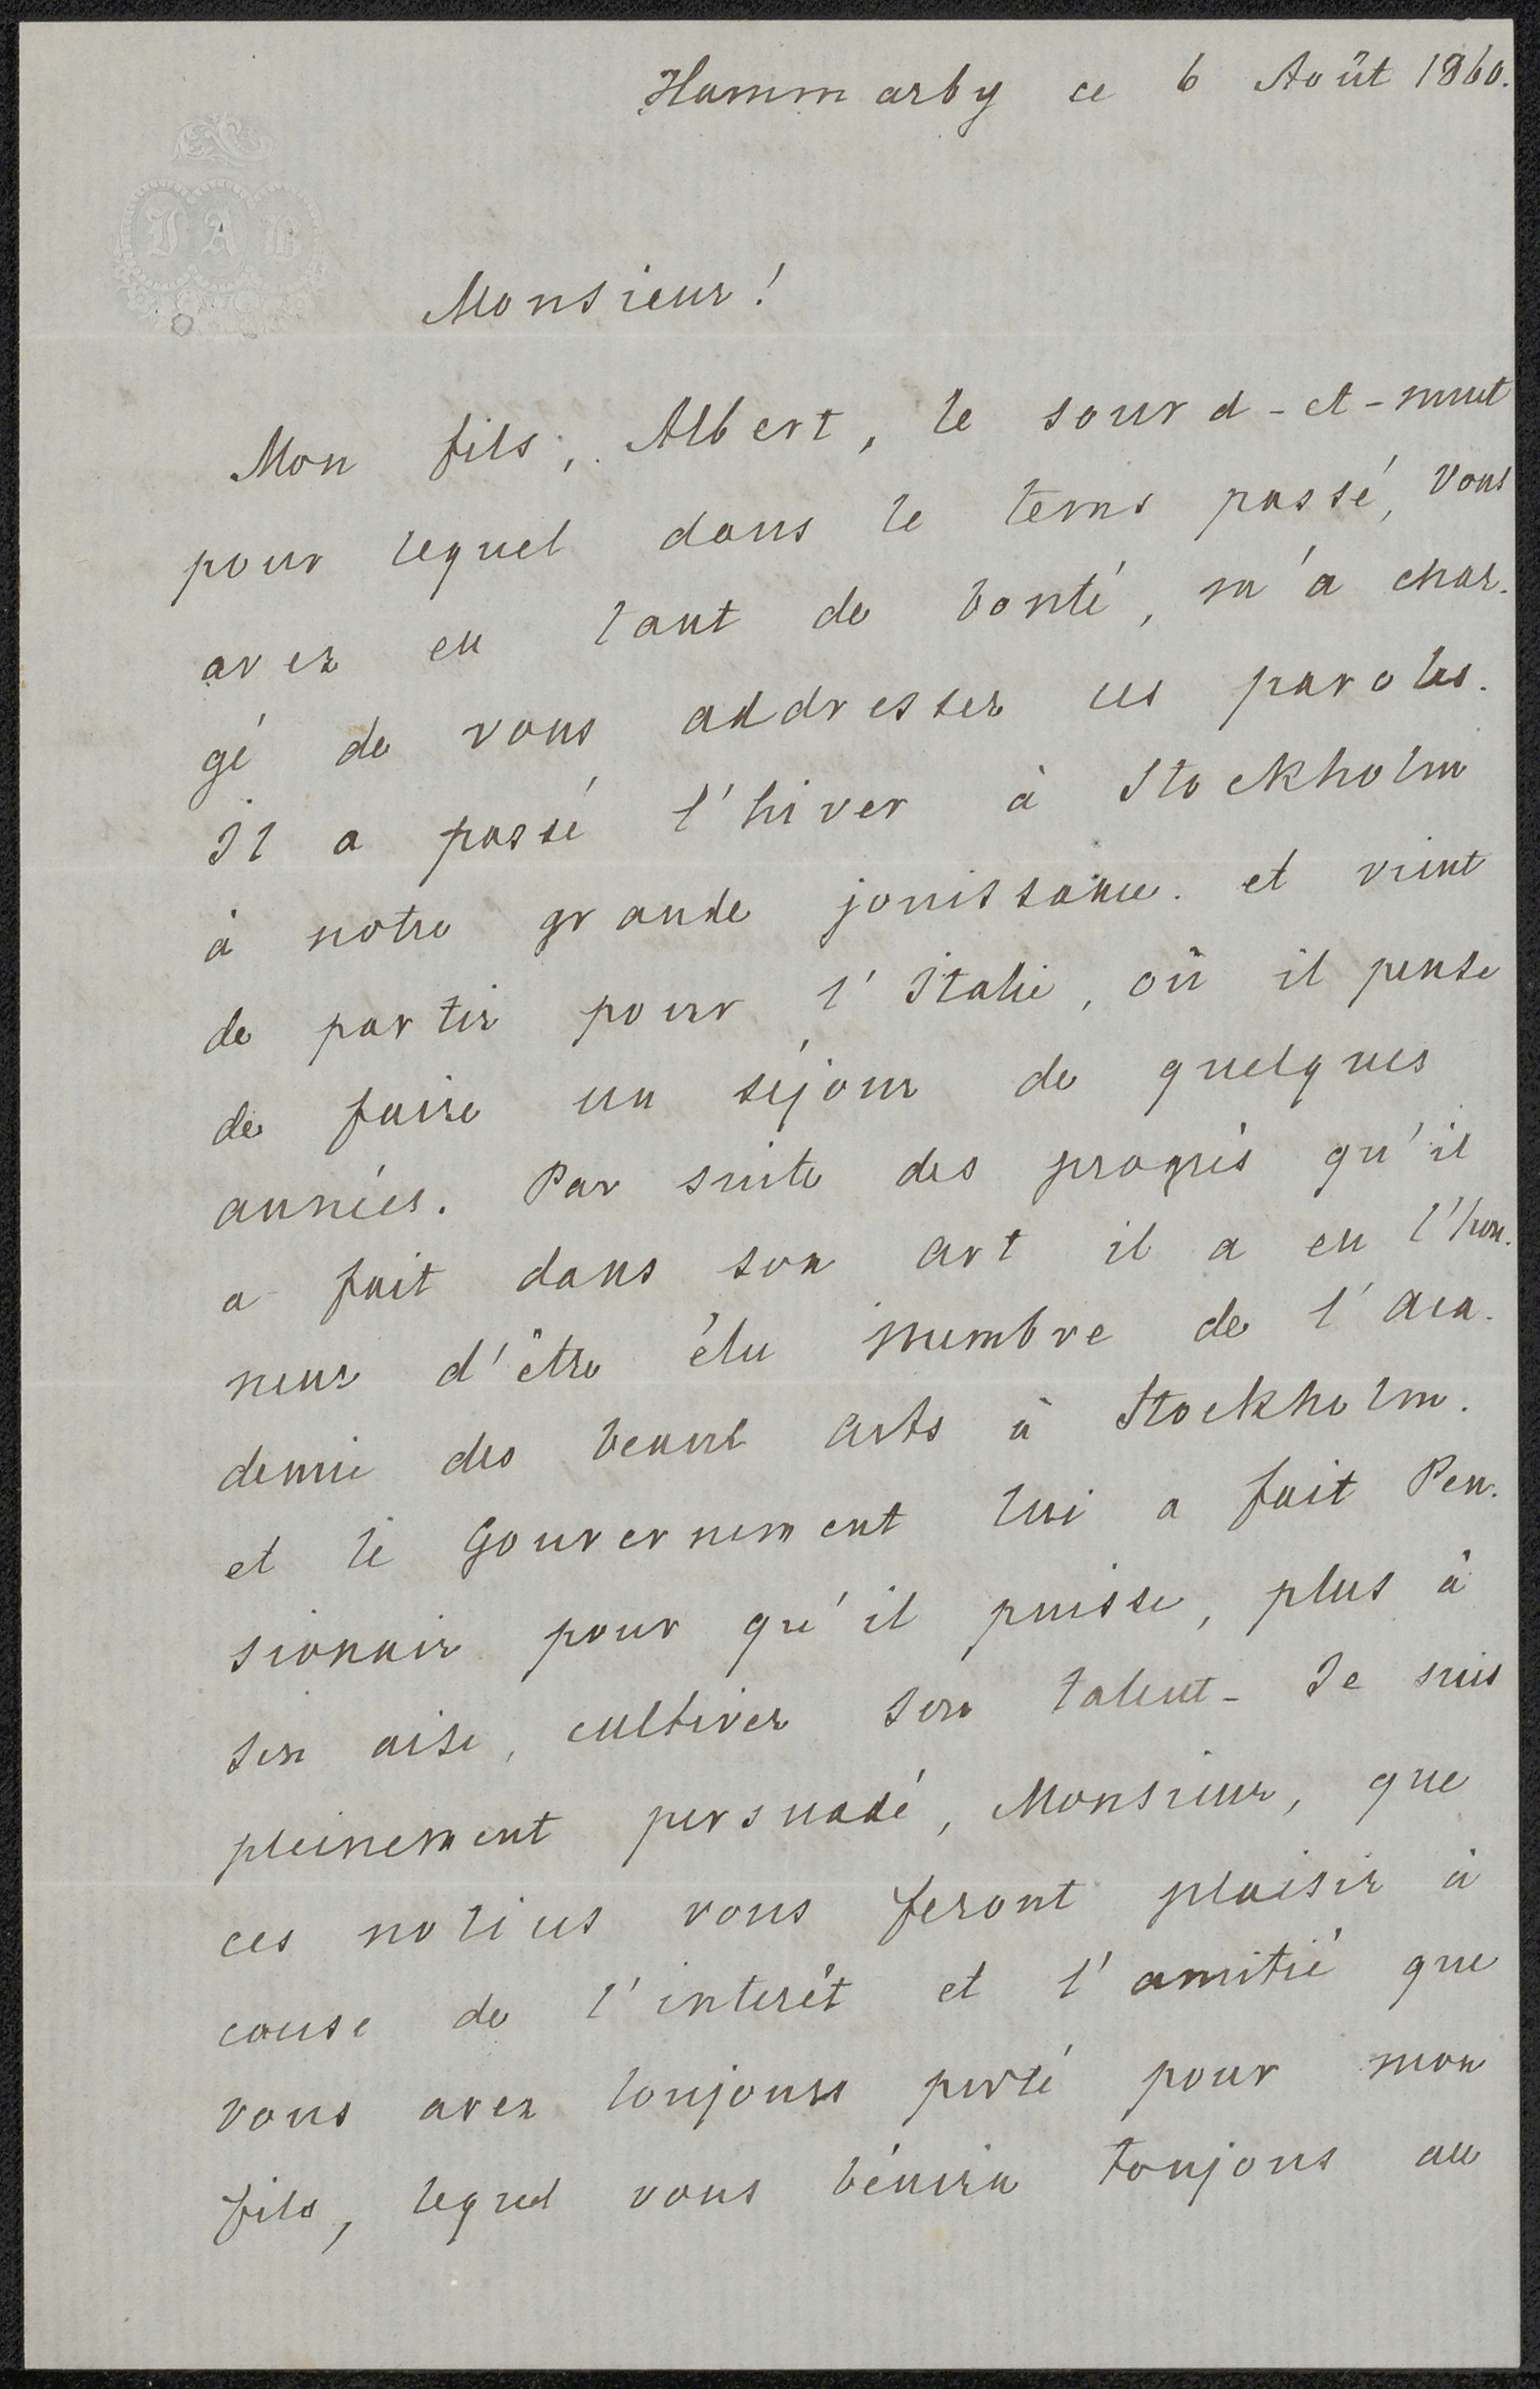 Hammarby ce 6 Août 1860.
J A B
Monsieur!
Mon fils, Albert, le sourd-et-muet
pour lequel dans le tems passé, vous
avez eu tant de bonté, m'a char-
gé de vous addresser ces paroles.
Il a passé l'hiver à Stockholm
à notre grande jouissance. et vient
de partir pour l'Italie, où il pense
de faire un séjour de quelques
années. Par suite des progrès qu'il
a fait dans son art il a eu l'hon-
neur d'être élu membre de l'Aca-
demie des beaux Arts à Stockholm.
et le Gouvernement lui a fait Pen-
sionair pour qu'il puisse, plus à
son aise, cultiver son talent- Je suis
pleinement persuadé, Monsieur, que
ces notices vous feront plaisir à
cause de l'interêt et l'amitié que
vous avez toujours porté pour mon
fils, lequel vous bénira toujours au